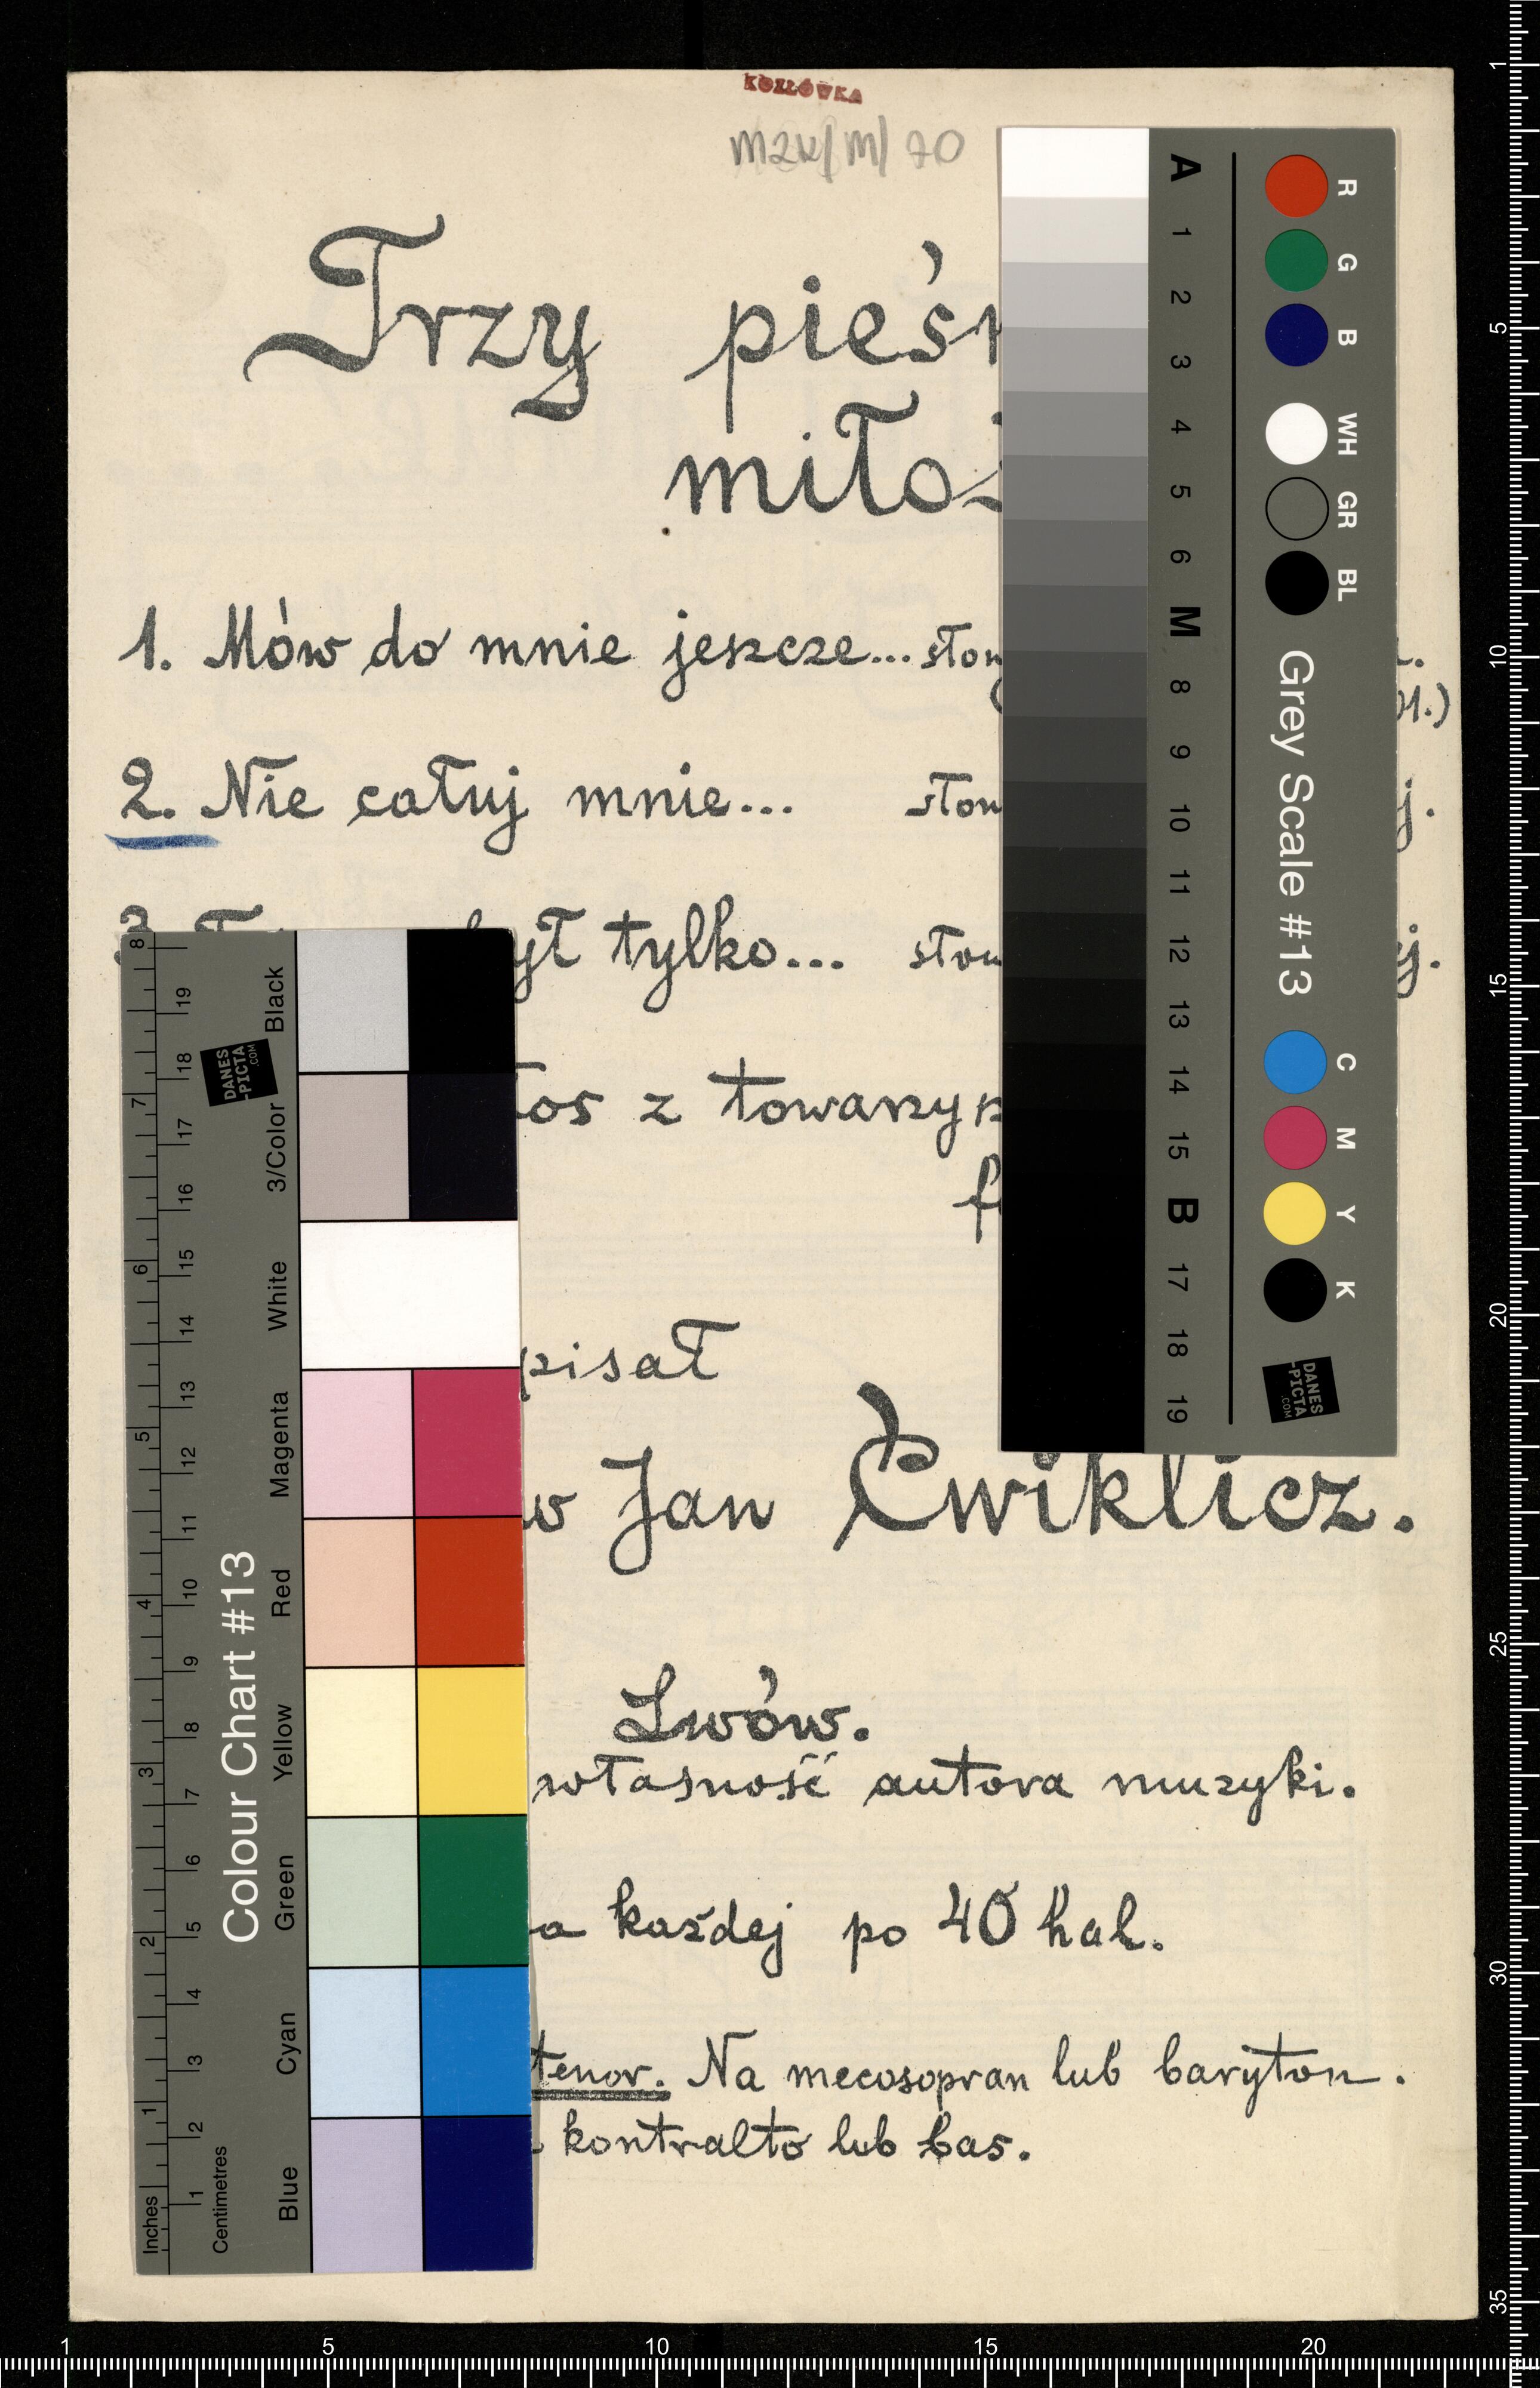 KOZŁÓWKA
MZK/M/70
Trzy
1. Mów do mnie jeszcze...
2. Nie całuj mnie...
3. tylko...
z
pisał
Jan Ćwiklicz.
Lwów.
własność autora muzyki.
każdej po 40 hal.
tenor. Na mecosopran lub baryton.
kontralto lub bas.
A 1 2 3 4 5 6 M 8 9 10 11 12 13 14 15 B 17 18 19
R G B WH GR BL Grey Scale #13 C M Y K
DANES-PICTA.COM
Colour Chart #13
Black 3/Color White Magenta Red Yellow Green Cyan Blue
DANES-PICTA.COM
19 18 17 16 15 14 13 12 11 10 9 8 7 6 5 4 3 2 1 Centimetres
8 7 6 5 4 3 2 1 Inches
1 5 10 15 20 25 30 35
1 5 10 15 20